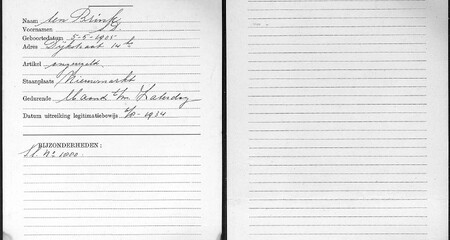 Naam ten Brink
Voornamen
Geboortedatum 5-5-1905
Adres Dijkstraat 14
Artikel ongeregeld
Staanplaats Nieuwmarkt
Gedurende Maand t/m Zaterdag
Datum uitreiking legitimatiebewijs 1934
BIJZONDERHEDEN:
No 1000.